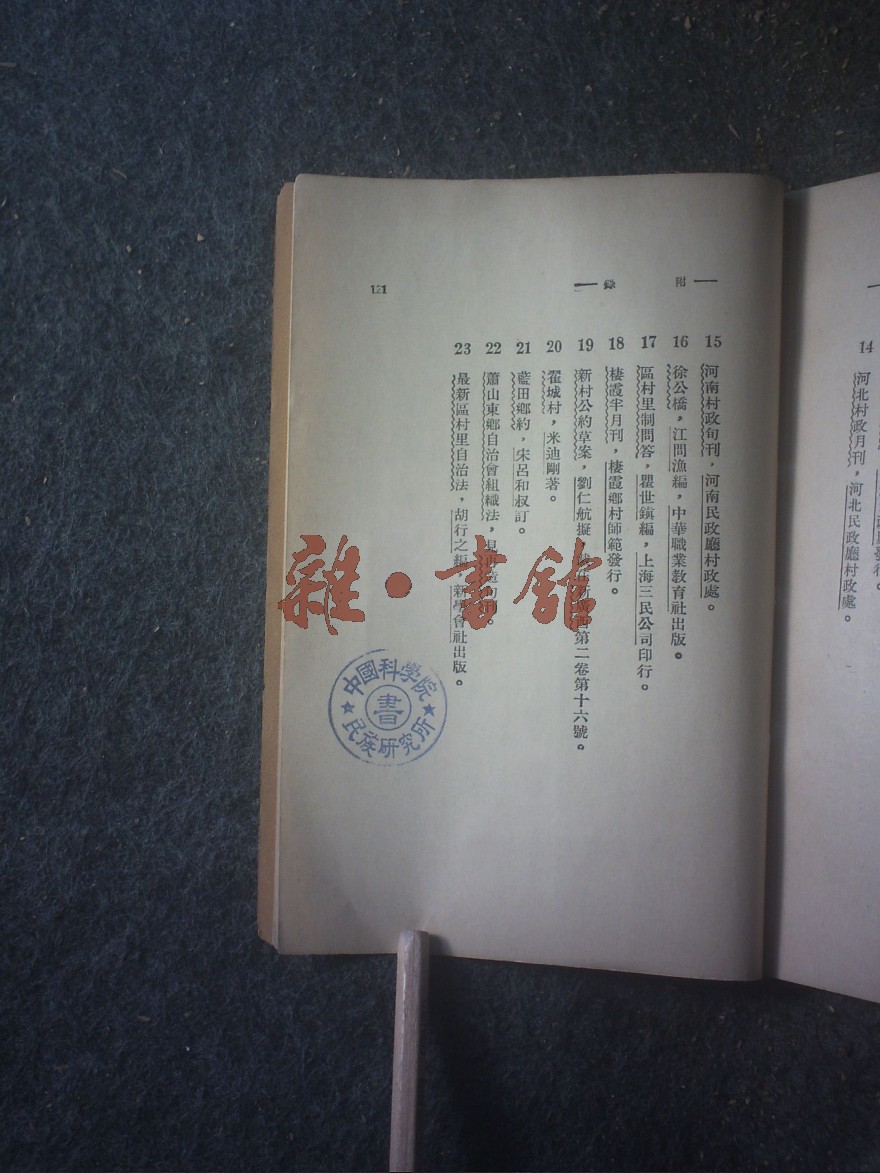 14 河北村政月刊，河北民政廳村政處。
附錄
15 河南村政旬刊，河南民政廳村政處。
16 徐公橋，江問漁編，中華職業教育社出版。
17 區村里制問答，瞿世鎮編，上海三民公司印行。
18 棲霞半月刊，棲霞鄉村師範發行。
19 新村公約草案，劉仁航擬，第二卷第十六號。
20 翟城村，米迪剛著。
21 藍田鄉約，宋呂和叔訂。
22 蕭山東鄉自治會組織法，見
23 最新區村里自治法，胡行之編，新學會社出版。
121
雜·書館
中國科學院
書
民族研究所